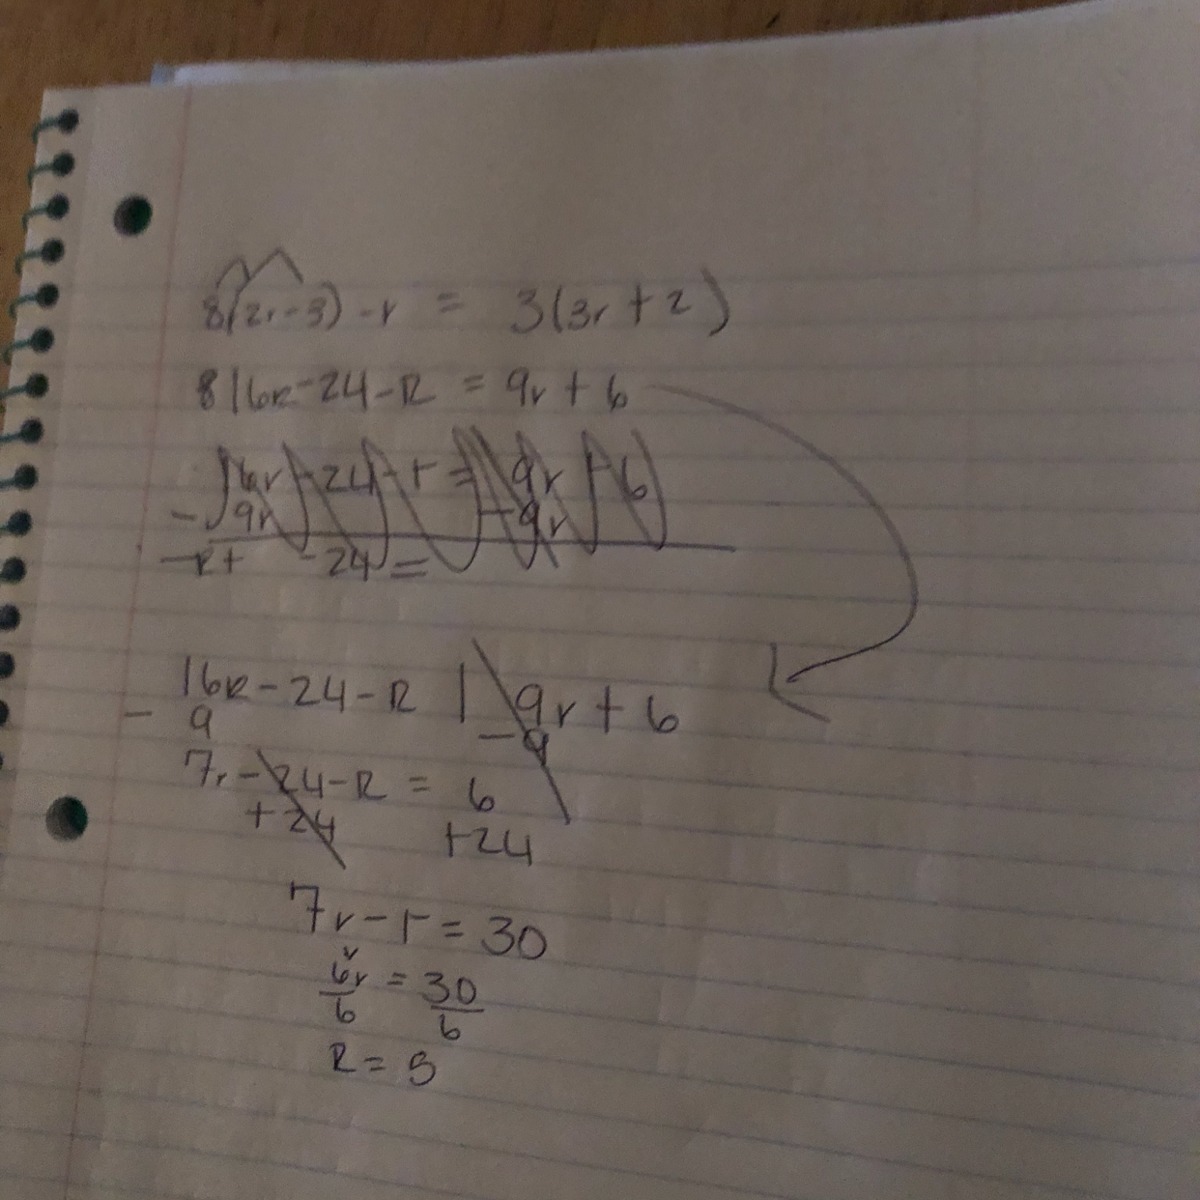 8(2r-3) -r = 3(3r+2)
8 16R-24-R = 9r+6
16r -24 -r = 9r 6
- 9r -9r
-R+ -24 =
16R-24-R | 9r+6
- 9 -9
7r-24-R = 6
+24 +24
7r-r=30
6r = 30
6 6
R=5